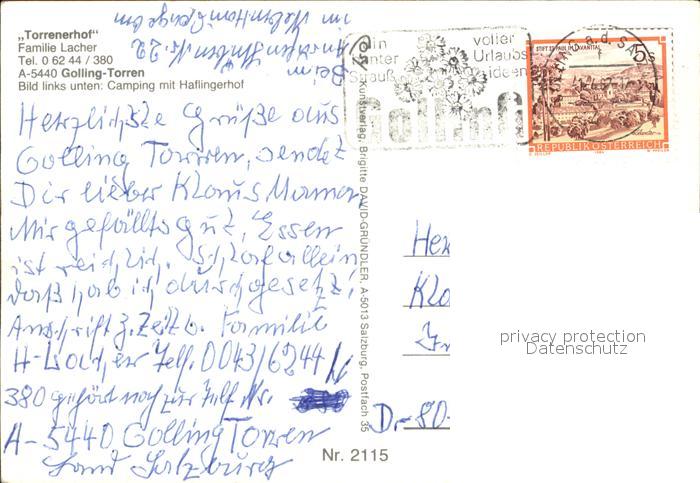 „Torrenerhof"
Familie Lacher
Tel. 0 62 44 / 380
A-5440 Golling-Torren
Bild links unten: Camping mit Haflingerhof
Herzlichste Grüße aus
Golling Torren, sendet
Dir lieber Klaus Mama
Mir gefällts gut, Essen
ist reichlich. Schlaf allein
daß hab ich durchgesetzt,
Anschrift z. Zeit b. Familie
H-Lacher Telf. 0043/6244/
380 gehört noch zur Telf. Nr.
A-5440 Golling Torren
Land Salzburg
Kunstverlag, Brigitte DAVID-GRÜNDLER, A-5013 Salzburg, Postfach 35
Nr. 2115
Ein
bunter
Strauß
voller
Urlaubs
ideen
Golling
STIFT ST. PAUL IM LAVANTTAL
5s
REPUBLIK ÖSTERREICH
Her
Kla
D.-80
privacy protection
Datenschutz